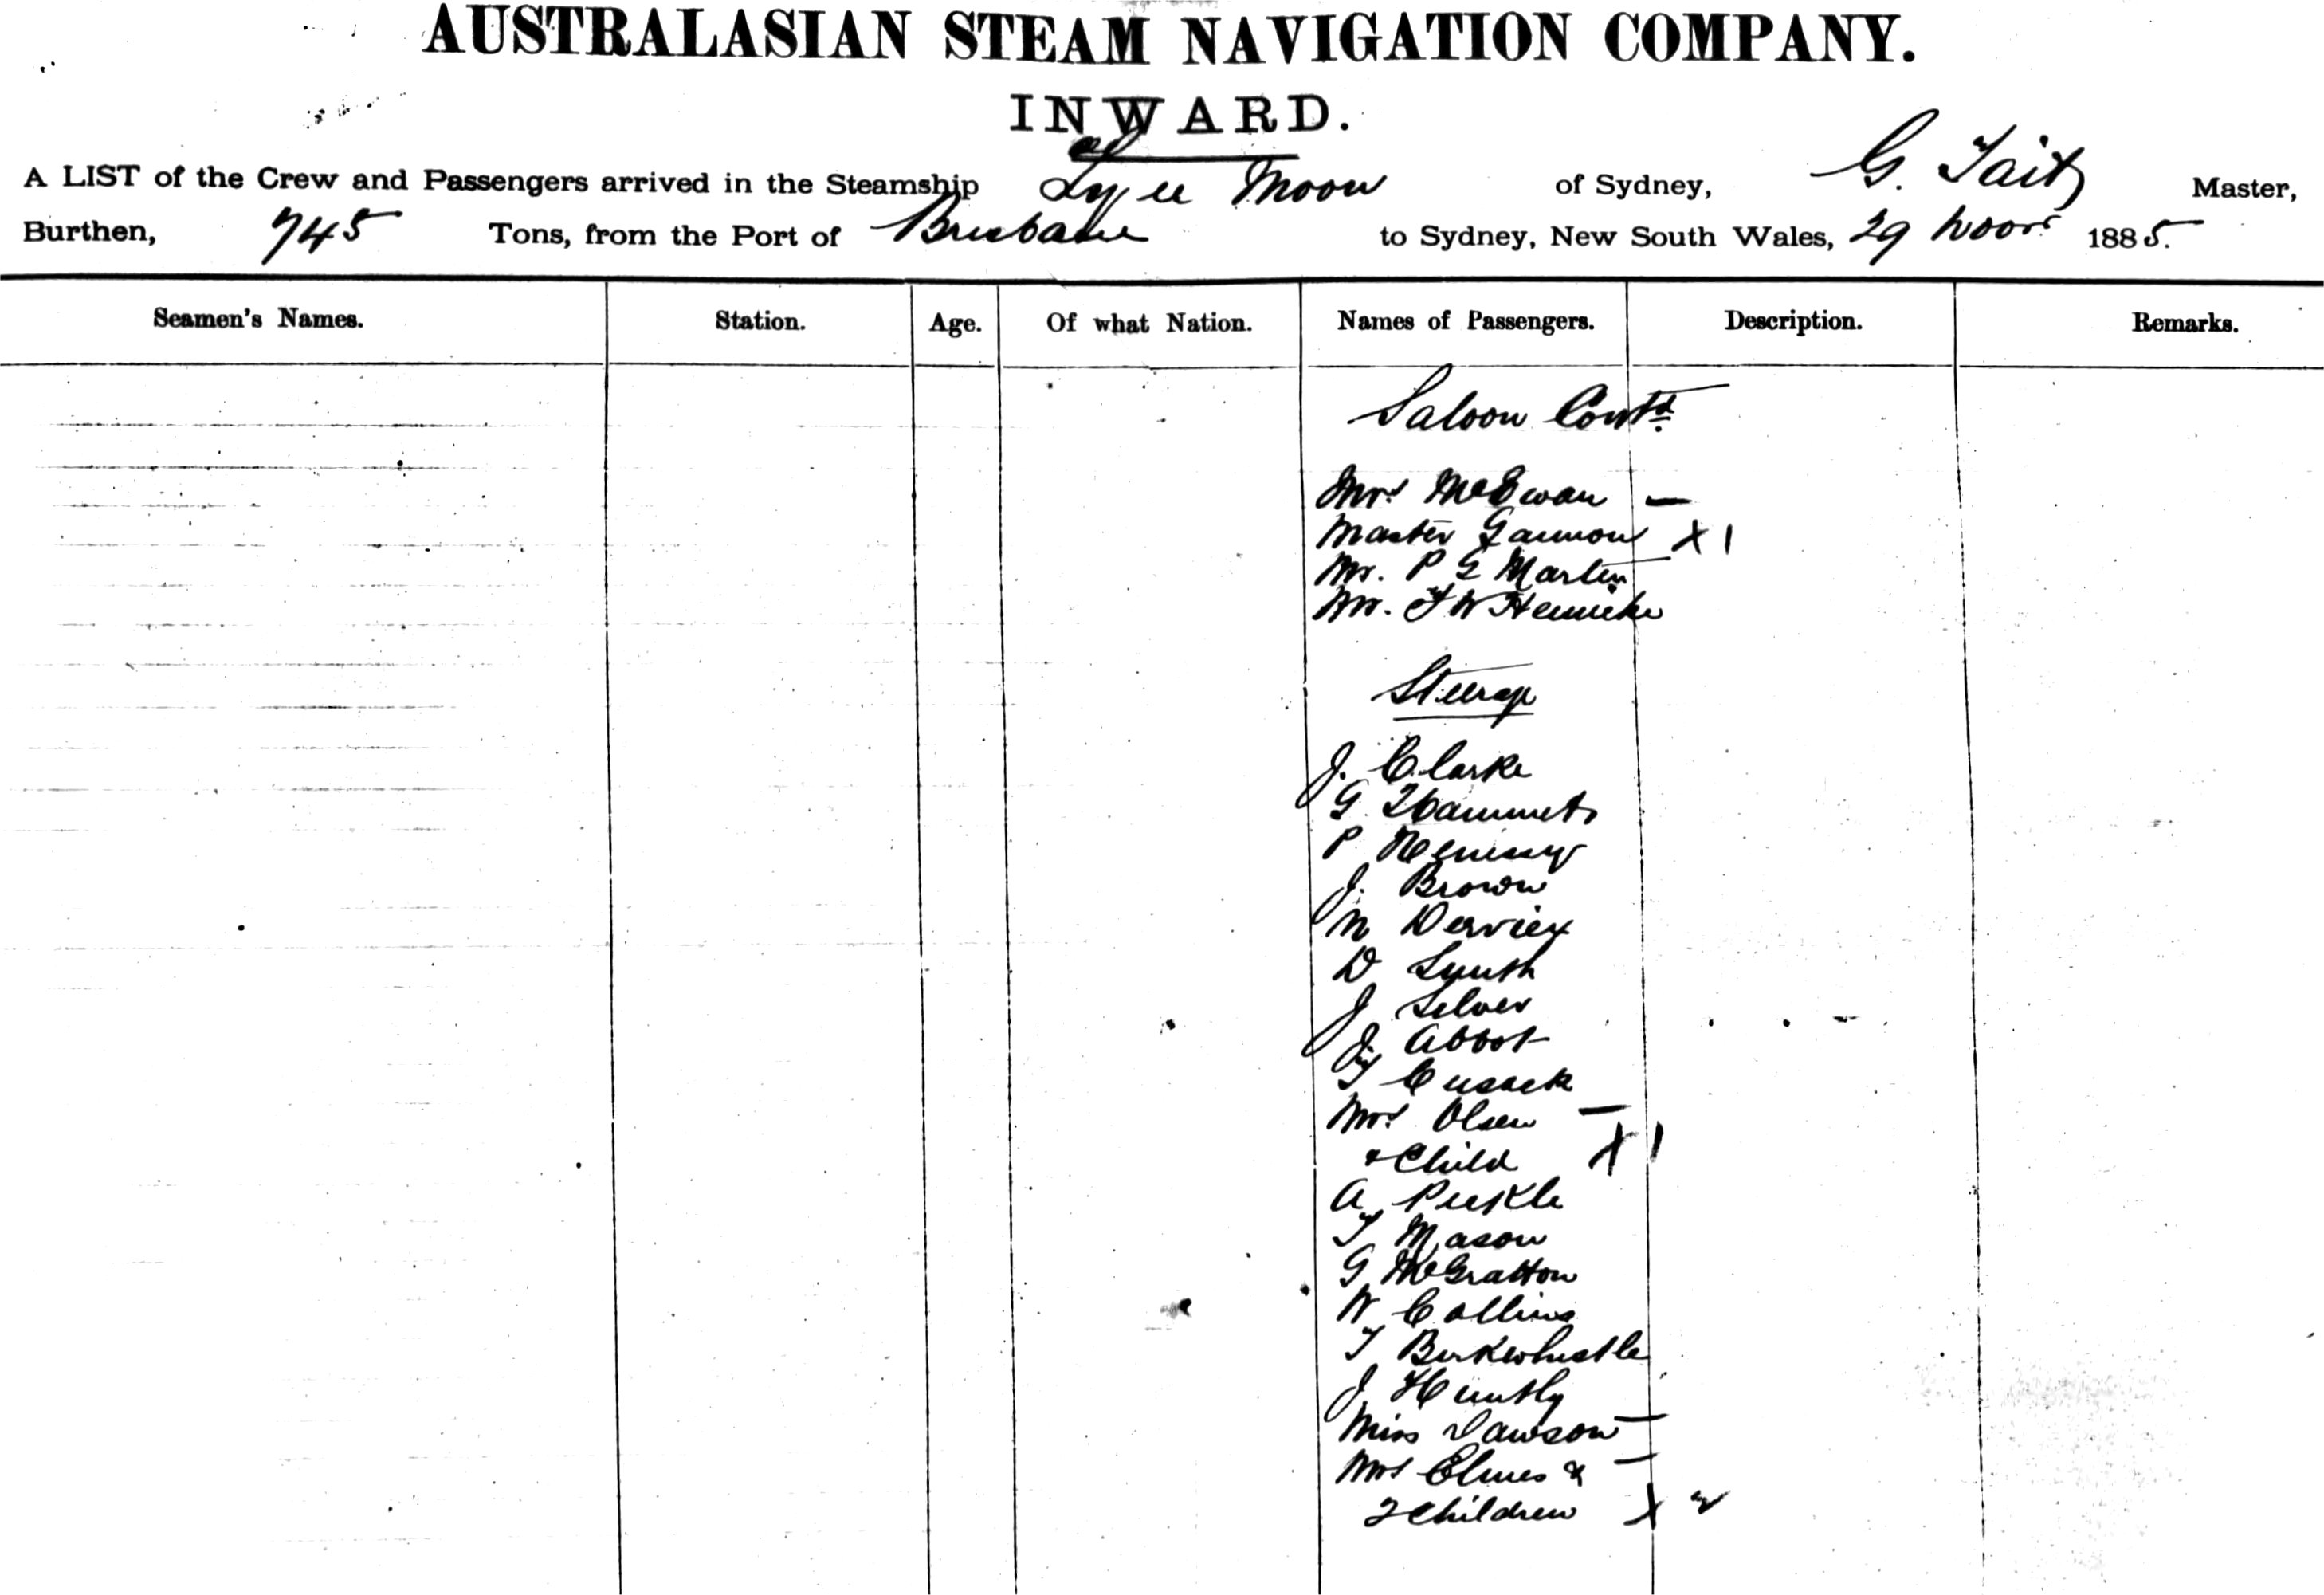 AUSTRALASIAN STEAM NAVIGATION COMPANY.
INWARD.
A LIST of the Crew and Passengers arrived in the Steamship Ly ee Moon of Sydney, G. Tait Master,
Burthen, 745 Tons, from the Port of Brisbane to Sydney, New South Wales, 29 Novr 1885.
Seamen's Names. Station. Age. Of what Nation. Names of Passengers. Description. Remarks.
Saloon Contd.
Mrs McEwan —
Master Gannon X 1
Mr. P G Martin
Mr. F W Hennicke
Steerage
J. Clarke
G Hammett
P Henessy
J. Brown
N Derviex
D Smith
J Silver
J Abbot
T Cusack
Mrs Olsen —
& Child X 1
A Peekle
T Mason
G McGratton
W Collins
T Birkwhistle
J Huntly
Miss Dawson —
Mrs Elmes & —
2 Children X 2